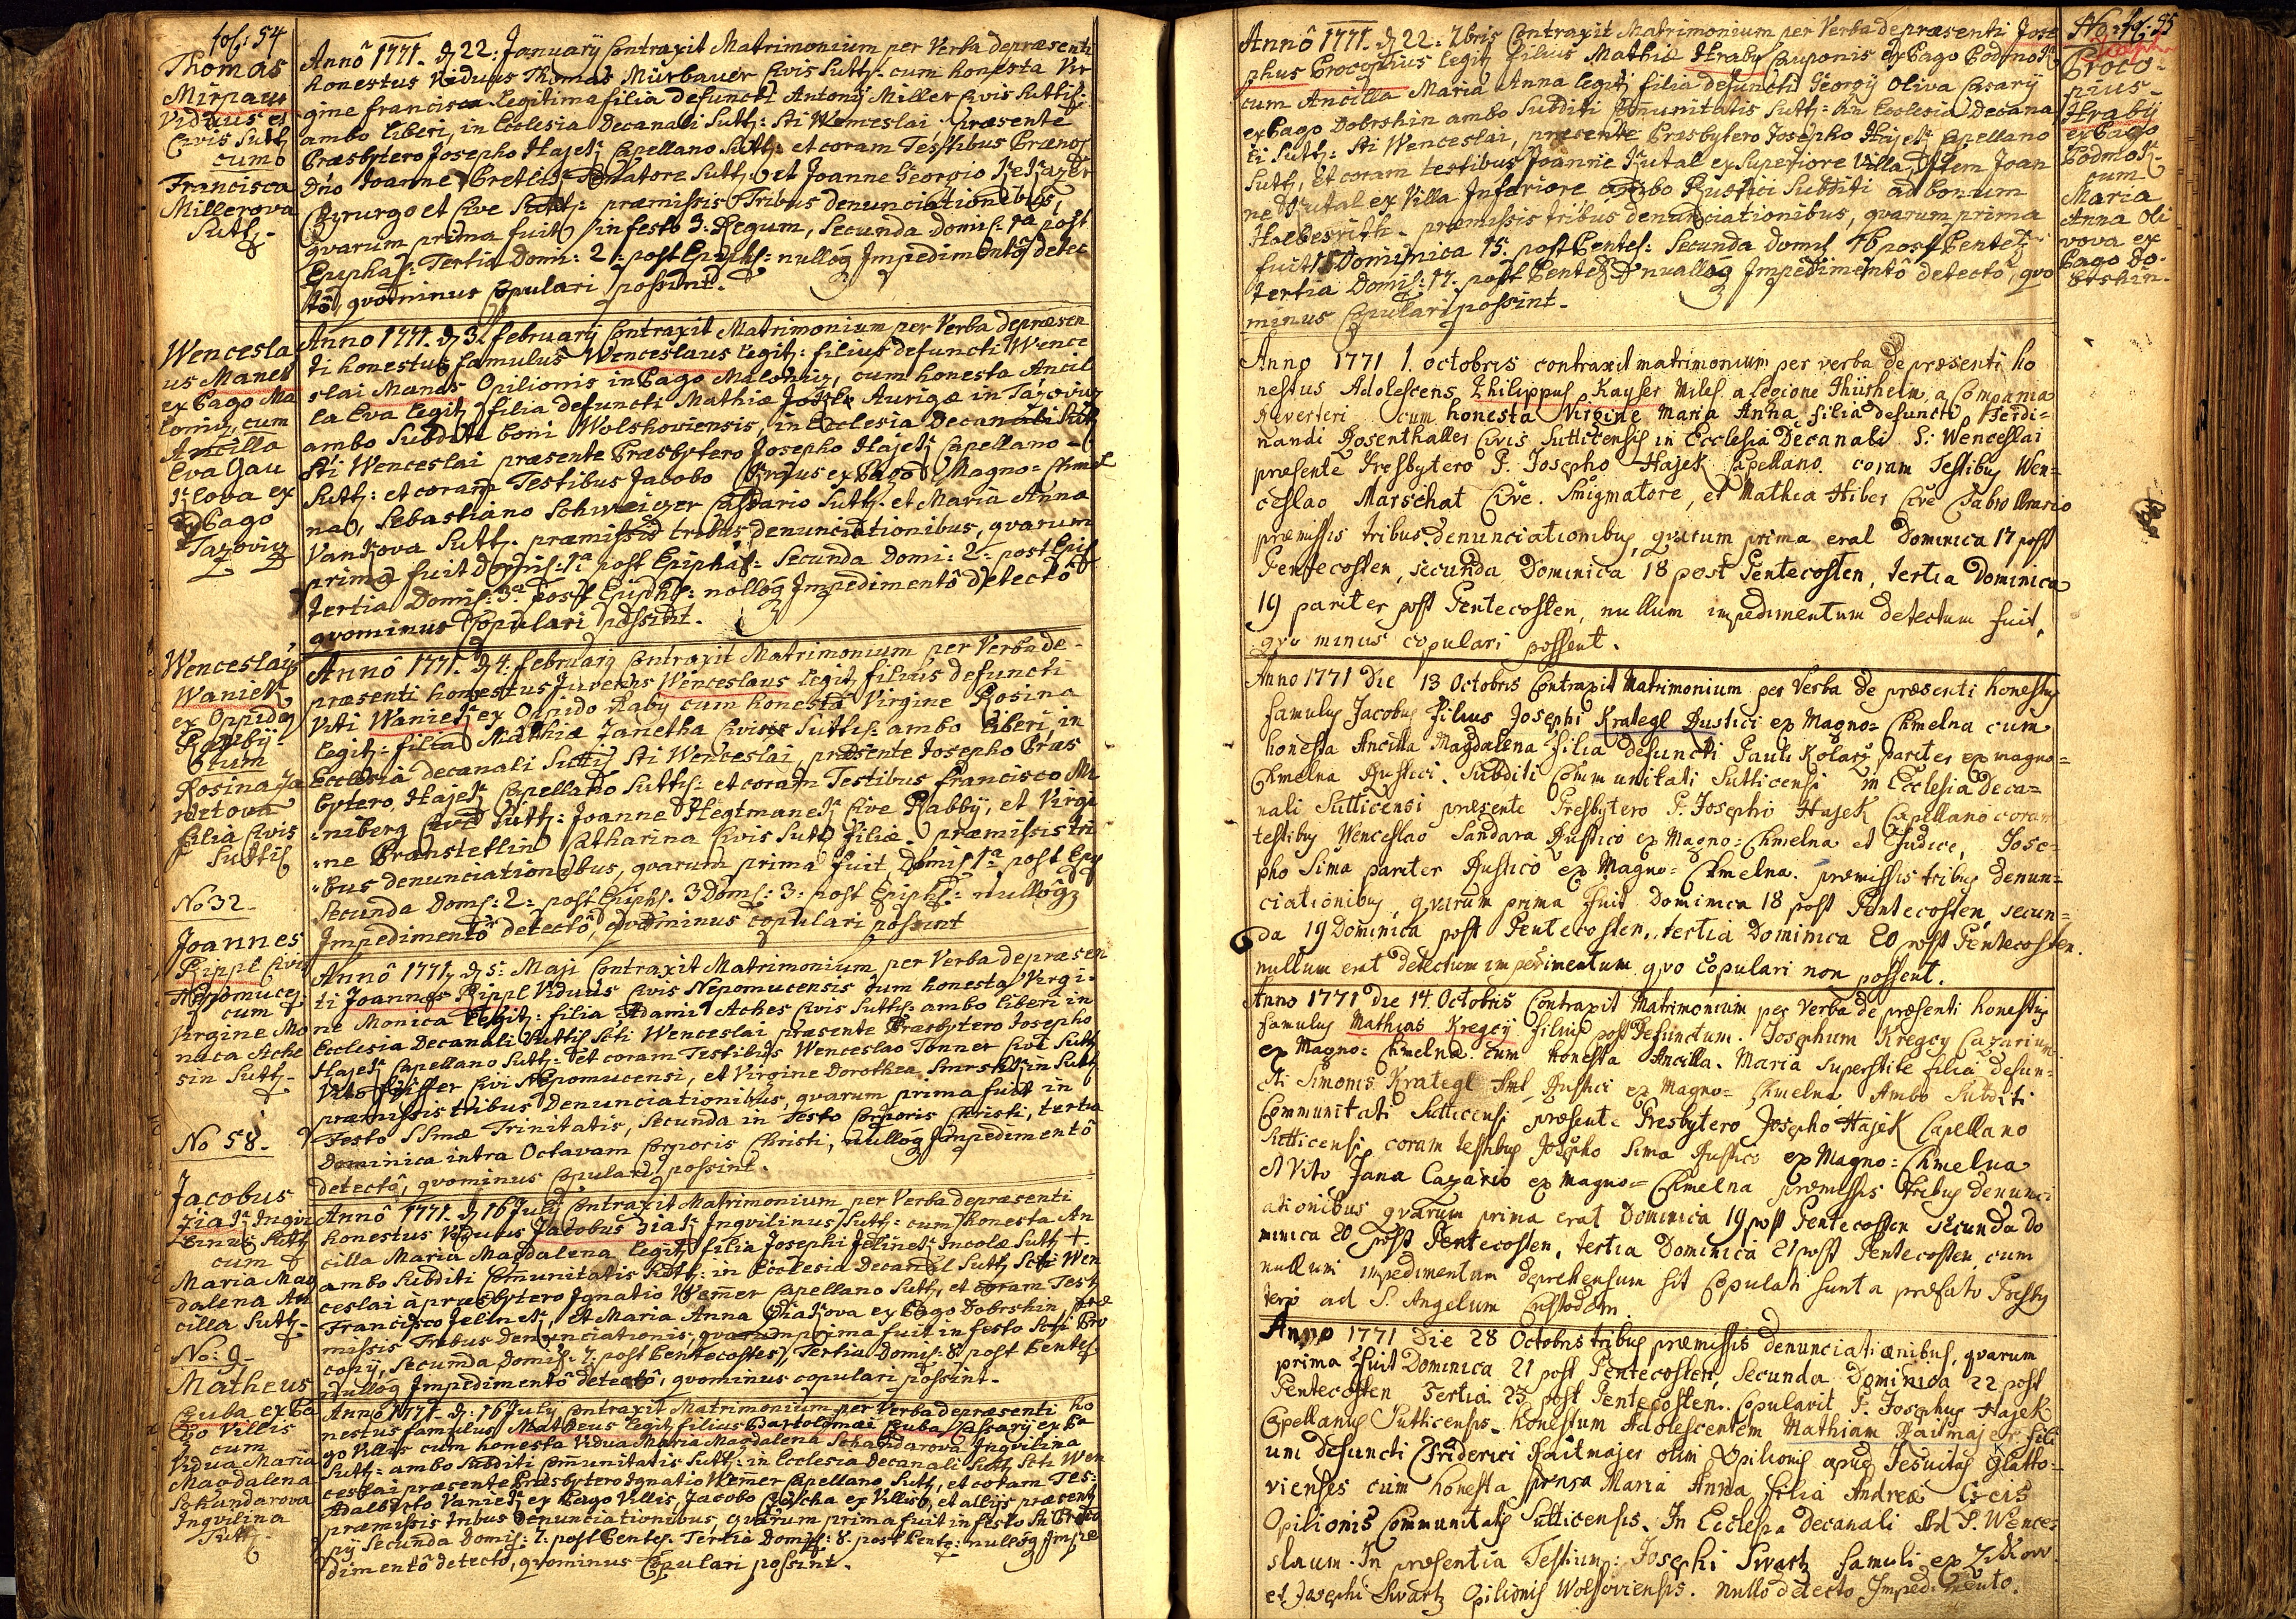 fol: 54
Thomas
Mirpaur
Viduus et
Civis Sutt
cum
Francisca
Millerova
Sutt.
Annô 1771. d 22. Januarÿ Contraxit Matrimonium per Verba de præsenti
honestus Viduus Thomas Mürbauer Civis Sutt: cum honesta Vir
gine Francisca Legitima filia defuncti Antonÿ Miller Civis Suttis:
ambo liberi, in Ecclesia Decanali Sutt: Sti Wenceslai præsente
Præsbytero Josepho Hajek Capellano Sutt: et coram Testibus Prænob
Dno Joanne Senatore Sutt: et Joanne Georgio
Chyrurgo et Cive Sutt: præmissis Tribus denunciationibus,
qvarum prima fuit in festo 3. Regum, Secunda domis: 1a post
Epiphas: Tertia Domi: 2: post Epiph: nullôq Impedimentô detec
tô, qvominus copulari possint.
Wencesla
us Manes
ex Pago Ma
loniz, cum
Ancilla
Eva Gau
kova ex
Pago
Tazoviz
Anno 1771. d 3. februarÿ Contraxit Matrimonium per Verba de præsen
ti honestus famulus Wenceslaus legit: filius defuncti Wence
slai Manes Opilionis in Pago Maloniz, cum honesta Ancil
la Eva legit filia defuncti Mathiæ Aurigæ in Tazoviz
ambo Subditi boni Wolshoviensis, in Ecclesia Decanali Sutt
Sti Wenceslai præsente Præsbytero Josepho Hajek Capellano
Sutt: et coram Testibus Jacobo ex Pago Magno = Hmel
na, Sebastiano Schweiger Sutt: et Maria Anna
Vankova Sutt. præmissis tribus denunciationibus, qvarum
prima fuit Domis: 1a post Epiphas: Secunda Domi: 2: post Epiph
Tertia Domis: 3a post Epiph: nullôq Impedimentô detectô
qvominus Copulari possint.
Wenceslaus
Waniek
ex Oppido
Rabÿ
cum
Rosina Ja
netova
filia Civis
Suttis
No 32.
Annô 1771. d 4. februarÿ Contraxit Matrimonium per Verba de
præsenti honestus Juvenus Wenceslaus legit filius defuncti
Viti Waniek ex Oppido Raby cum honesta Virgine Rosina
legit: filia Mathiæ Janetha Civis Suttis: ambo liberi, in
Ecclesia decanali Suttis Sti Wenceslai, præsente Josepho Præs
bytero, Hajek Capellano Suttis: et coram Testibus francisco Mi
niberg Cive Sutt: Joanne Hegtmanek Cive Rabbÿ, et Virgi
ne Branstetlin Catharina Civis Sutt filiæ. præmissis tri
bus denunciationibus, qvarum prima fuit Domis 1a post Epip
Secunda Doms: 2: post Epiph. 3 Doms: 3. post Epiph: nullôq
Impedimentô detectô, qvominus copulari possint
Joannes
Rippl Civis
Nepomuce
cum
Virgine Mo
nica Ache
sin Sutt.
No 58.
Annô 1771, d 5. Maji Contraxit Matrimonium per Verba de præsen
ti Joannes Rippl Viduus Civis Nepomucensis cum honesta Virgi
ne Monica legit: filia Adami Aches Civis Sutt: ambo liberi in
Ecclesia Decanali Suttis Scti Wenceslai præsente Præsbytero Josepho
Hajek Capellano Sutt: et coram Testibus Wenceslao Tonner Cive Sutt
Vito Civi Nepomucensi, et Virgine Dorothea in Sutt
præmissis tribus Denunciationibus, qvarum prima fuit in
Festo SSmæ Trinitatis, Secunda in Festo Corporis Christi, tertia
Dominica intra Octavam Corporis Christi, nullôq Impedimentô
detectô, qvominus Copulari possint.
Jacobus
Ziak Ingvi
linus Sutt
cum
Maria Mag
dalena An
cilla Sutt.
No: 9.
Annô 1771. d 16 July Contraxit Matrimonium per Verba de præsenti
honestus Viduus Jacobus Ziak Ingvilinus Sutt: cum honesta An
cilla Maria Magdalena legit filia Josephi Jelinek Incolæ Sutt +.
ambo Subditi Comunitatis Sutt: in Ecclesia Decanal Sutt Scti Wen
ceslai à præsbytero Ignatio Wemer Capellano Sutt, et coram Test
Francisco Jelinek, et Maria Anna ex Pago Dobrshin, præ
missis Tribus Denunciationis, qvarum prima fuit in festo Scti Pro
copÿ, Secunda Domis: 7. post Pentecostes, Tertia Domis: 8. post Pentes:
nullôq Impedimentô detectô, qvominus copulari possint.
Matheus
Cuba ex Pa
go Villis
cum
Vidua Maria
Magdalena
Schandarova
Ingvilina
Sutt.
Annô 1771. d. 16 July Contraxit Matrimonium per Verba de præsenti ho
nestus famulus Matheus legit filius Bartolomæi Cuba Casarÿ ex Pa
go Villis cum honesta Vidua Maria Magdalena Schandarova Ingvilina
Sutt: ambo Subditi Comunitatis Sutt: in Ecclesia Decanali Sutt Scti Wen
ceslai præsente Præsbytero Ignatio Wemer Capellano Sutt, et coram Tes:
Adalberto Vaniek ex Pago Villis, Jacobo ex Villis, et aliÿs præsent
præmissis tribus denunciationibus, qvarum prima fuit in festo Sti Proco
pÿ Secunda Domis: 7. post Pentes. Tertia Domis: 8. post Pente: nullôq Impe
dimentô detectô, qvominus Copulari possint.
fol. 55
Joseph
Proco-
pius
Hrabÿ
ex Pago
Podmok
cum
Maria
Anna Oli
vova ex
Pago Do-
brshin.
Annô 1771. d 22. 7bris Contraxit Matrimonium per Verba de præsenti Jose
phus Procopius legit filius Mathiæ Hraby Cauponis ex Pago Podmok
cum Ancilla Maria Anna legit filia defuncti Georgÿ Oliva Casarÿ
ex Pago Dobrshin ambo Subditi Comunitatis Sutt: in Ecclesia Decana
li Sutt: Sti Wenceslai, præsente Præsbytero Josepho Hajek Capellano
Sutt, et coram testibus Joanne Kutal ex Superiore Villa, Item Joan
ne Kutal ex Villa Inferiore ambo Rustici Subditi ad bonum
præmissis tribus denunciationibus, qvarum prima
fuit Dominica 15. post Pentes: Secunda domis 16 post Pentec
Tertia Domis: 17. post Pentec nullôq Impedimentô detectô, qvo
minus Copulari possint.
Anno 1771 1. octobris contraxit matrimonium per verba de præsenti ho
nestus Adolescens Philippus Kayser Miles a Legione Thürheim, a Compania
Reverteri cum honesta Virgine Maria Anna filia defuncti Ferdi=
nandi Rosenthaller Civis Sutticensis in Ecclesia Decanali S. Wenceslai
præsente Presbytero P. Josepho Hajek Capellano coram Testibus Wen=
ceslao Marschat Cive Smigmatore, et Mathia Hiber Cive Fabro
præmissis tribus denunciationibus, qvarum prima erat Dominica 17 post
Pentecosten, secunda Dominica 18 post Pentecosten, tertia Dominica
19 pariter post Pentecosten, nullum impedimentum detectum fuit,
qvo minus copulari possent.
Anno 1771 Die 13 Octobris Contraxit Matrimonium per Verba de præsenti honestus
famulus Jacobus filius Josephi Krategl Rustici ex Magno= Chmelna cum
honesta Ancilla Magdalena filia defuncti Pauli Kolarÿ pariter ex magno=
Chmelna Rustici. Subditi Communitati Sutticensi in Ecclesia Deca=
nali Sutticensi præsente Presbytero P. Josepho Hajek Capellano coram
testibus Wenceslao Sandara Rustico ex Magno= Chmelna et Judice, Jose=
pho Sima pariter Rustico ex Magno= Chmelna. præmissis tribus denun=
ciationibus, qvarum prima fuit Dominica 18 post Pentecosten, secun=
da 19 Dominica post Pentecosten, tertia Dominica 20 post Pentecosten.
nullum erat detectum impedimentum qvo copulari non possent.
Anno 1771 Die 14. Octobris Contraxit Matrimonium per Verba de præsenti honestus
famulus Mathias Kregcÿ filius post Defunctum Josephum Kregcy Cazarium
ex Magno= Chmelna cum honesta Ancilla Maria superstite filia defun=
cti Simonis Krategl Rustici ex Magno= Chmelna Ambo Subditi
Communitati Sutticensi præsente Presbytero Josepho Hajek Capellano
Sutticensi, coram testibus Josepho Sima Rustico ex Magno= Chmelna
et Vito Jana Cazario ex Magno= Chmelna præmissis Tribus denunci
ationibus qvarum prima erat Dominica 19 post Pentecosten secunda Do
minica 20 post Pentecosten, tertia Dominica 21 post Pentecosten, cum
nullum impedimentum deprehensum sit Copulati sunt a præfato Presby
tero ad S. Angelum Custodem.
Anno 1771 Die 28 Octobris tribus præmissis denunciationibus, qvarum
prima fuit Dominica 21 post Pentecosten, Secunda Dominica 22 post
Pentecosten Tertia 23 post Pentecosten. Copulavit P. Josephus Hajek
Capellanus Sutticensis honestum Adolescentem Mathiam Raitmajer fili
um defuncti Friderici Raitmajer olim Opilionis apud Jesuitas Glatto=
vienses cum honesta sponsa Maria Anna filia Andreæ
Opilionis Communitatis Sutticensis. In Ecclesia Decanali Ad S. Wences
slaum. In præsentia Testium: Josephi Swartz famuli ex
et Josephi Swartz Opilionis Wolshoviensis. Nullo detecto Impedimento.